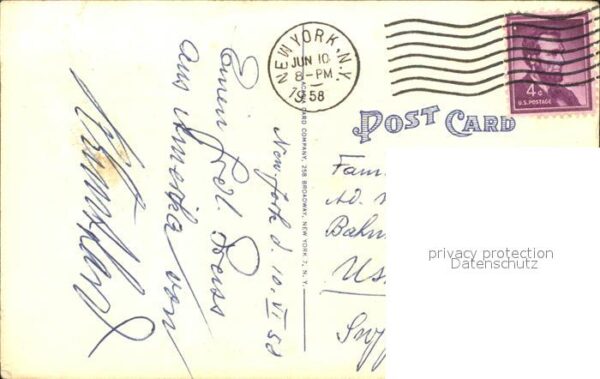 NEW YORK, N.Y.
JUN 10
8-PM
1958
4¢
U.S. POSTAGE
POST CARD
CARD COMPANY, 258 BROADWAY, NEW YORK 7, N. Y.
New York d. 10. VI 58
Einen frdl. Gruss
aus Amerika von
Fam
Ad.
Bahn
Us
privacy protection
Datenschutz